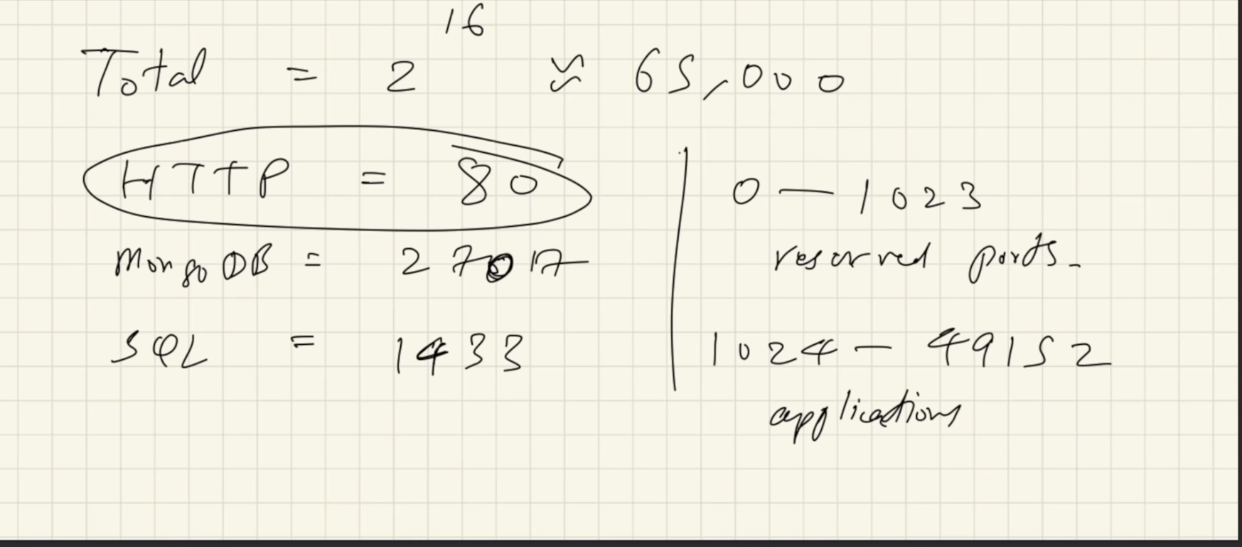 Total = 2^16 ≈ 65,000
HTTP = 80
MongoDB = 27017
SQL = 1433
0 — 1023
reserved ports.
1024 — 49152
applications